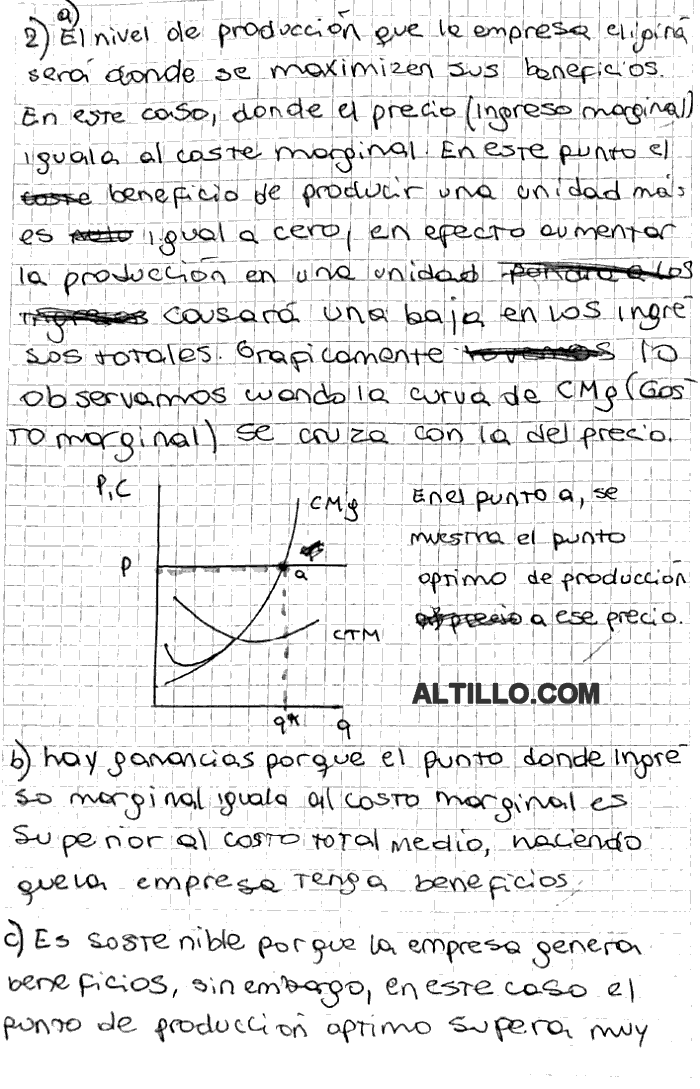 a)
2) El nivel de producción que la empresa elijirá
será donde se maximizen sus beneficios.
En este caso, donde el precio (Ingreso marginal)
iguala al coste marginal. En este punto el
beneficio de producir una unidad más
es igual a cero, en efecto aumentar
la producción en una unidad
causará una baja en los ingre
sos totales. Graficamente lo
observamos cuando la curva de CMg (Cos
to marginal) se cruza con la del precio.
P,C
CMg
P
a
CTM
q*
q
En el punto a, se
muestra el punto
optimo de producción
a ese precio.
ALTILLO.COM
b) hay ganancias porque el punto donde Ingre
so marginal iguala al costo marginal es
superior al costo total medio, haciendo
que la empresa tenga beneficios
c) Es sostenible porque la empresa genera
beneficios, sin embargo, en este caso el
punto de producción optimo supera muy